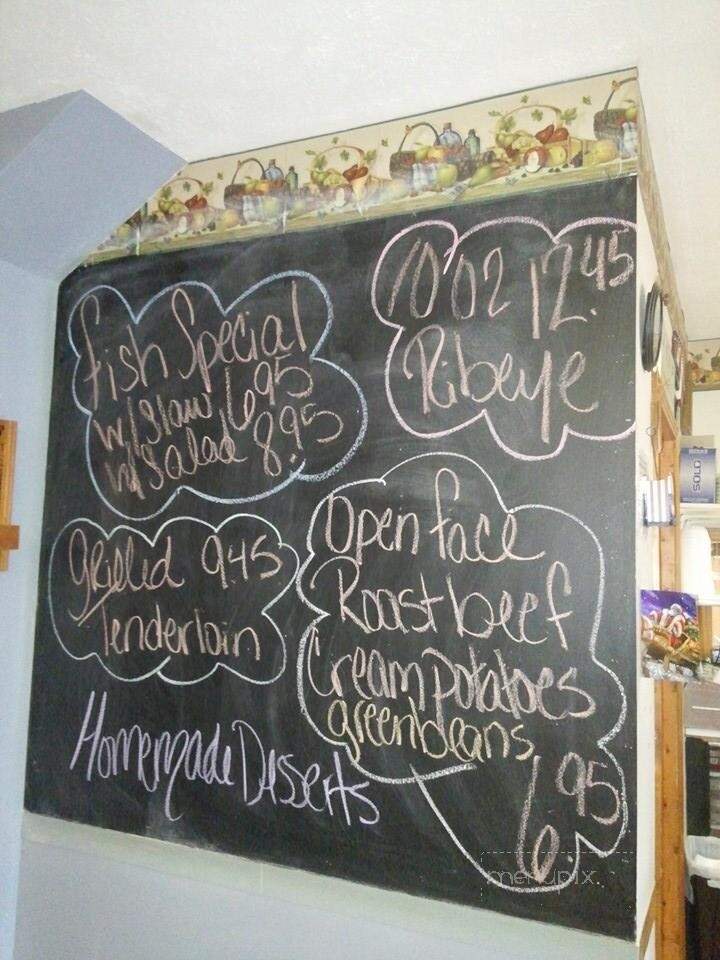 Fish Special
w/slaw 6.95
w/Salad 8.95
10 oz 12.45
Ribeye
grilled 9.45
Tenderloin
Open face
Roast beef
Cream potatoes
greenbeans
6.95
Homemade Desserts
SOLO
menupix